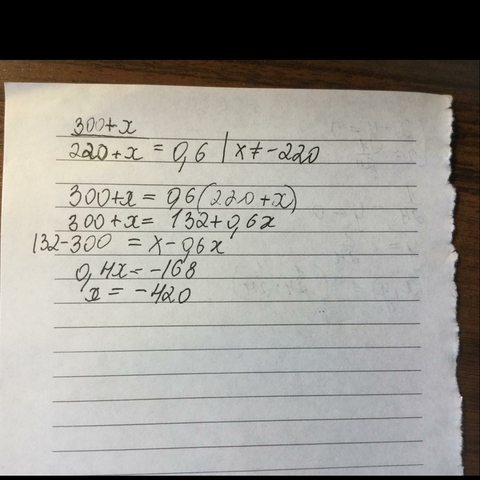 300+x
220+x = 0,6 | x ≠ -220
300+x = 0,6(220+x)
300+x = 132+0,6x
132-300 = x-0,6x
0,4x = -168
x = -420